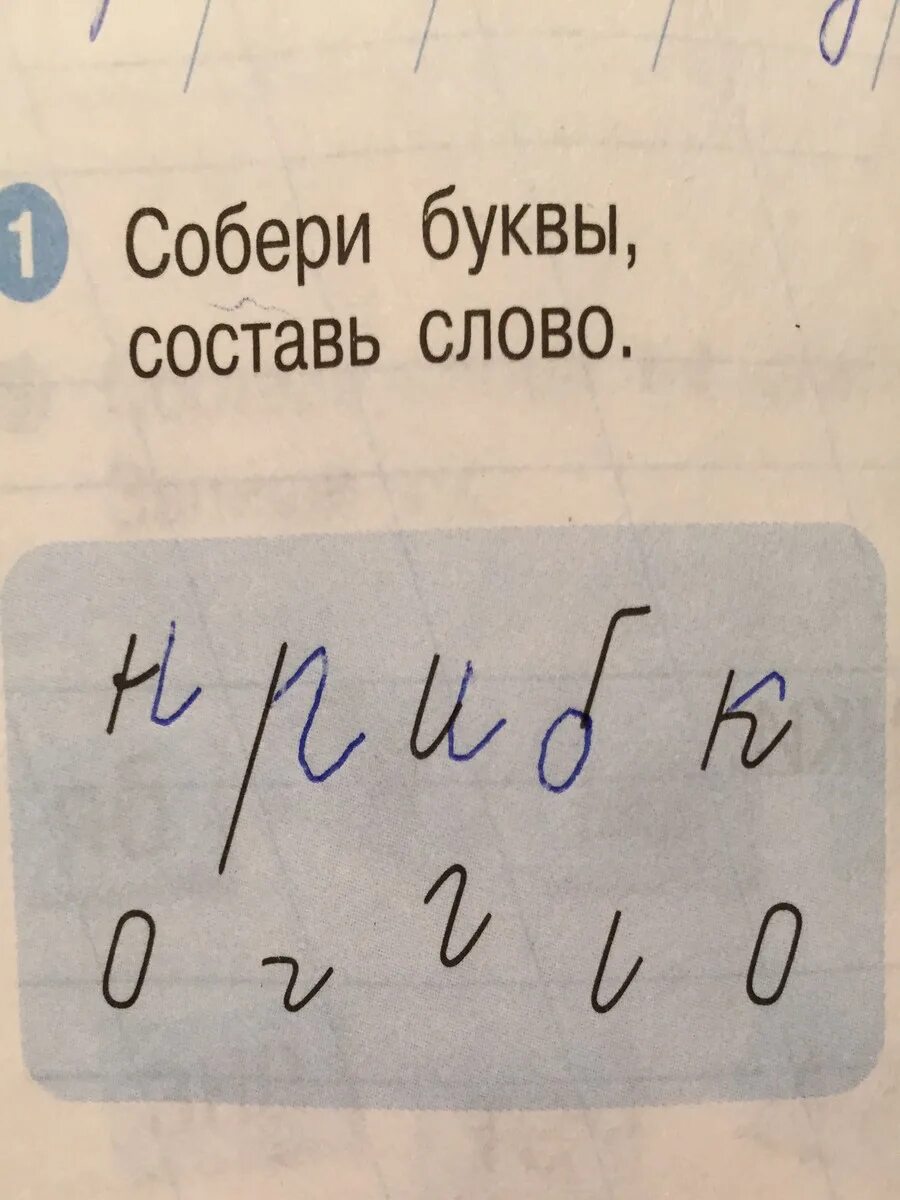 1 Собери буквы,
составь слово.
н р и б к